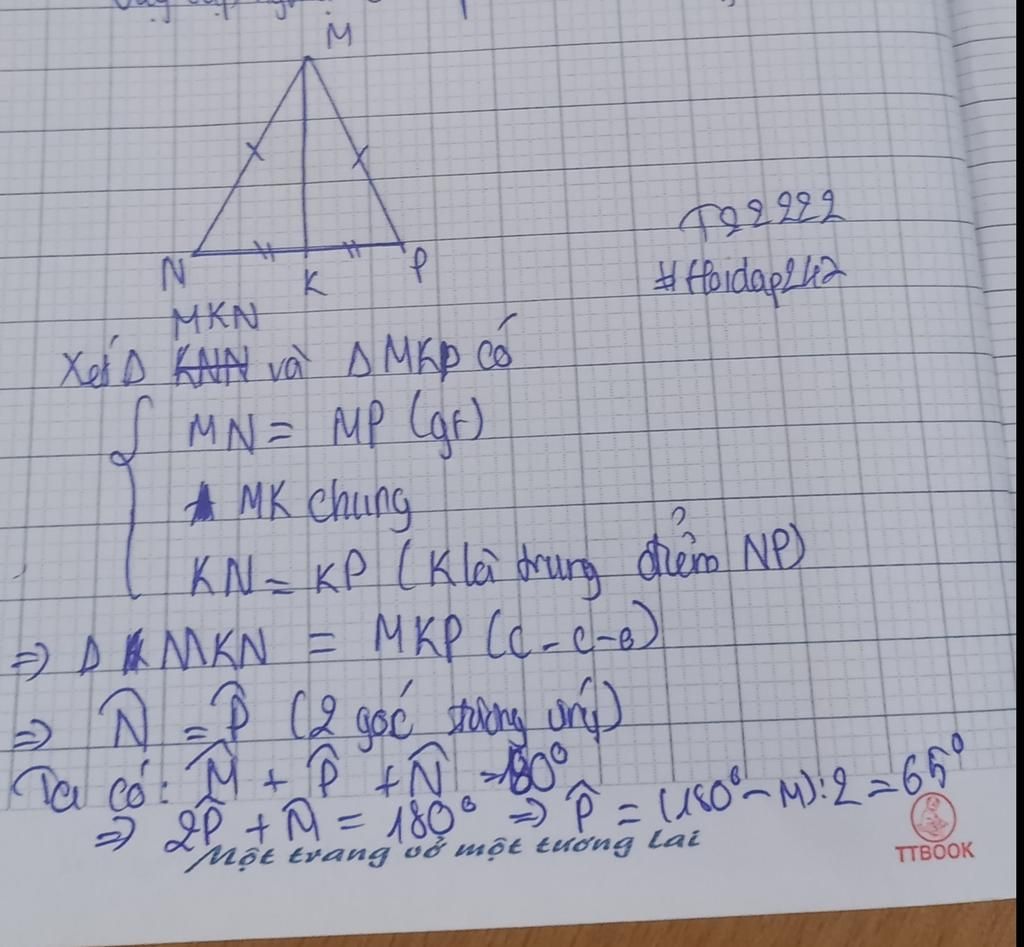 M
N
K
P
TQ2222
#Hoidap247
MKN
Xét Δ KNN và Δ MKP có
MN = MP (gt)
MK chung
KN = KP (K là trung điểm NP)
=> Δ MKN = MKP (c-c-c)
=> N̂ = P̂ (2 góc tương ứng)
Ta có: M̂ + P̂ + N̂ = 180°
=> 2P̂ + M̂ = 180° => P̂ = (180° - M):2 = 65°
Một trang vở một tương lai
TTBOOK